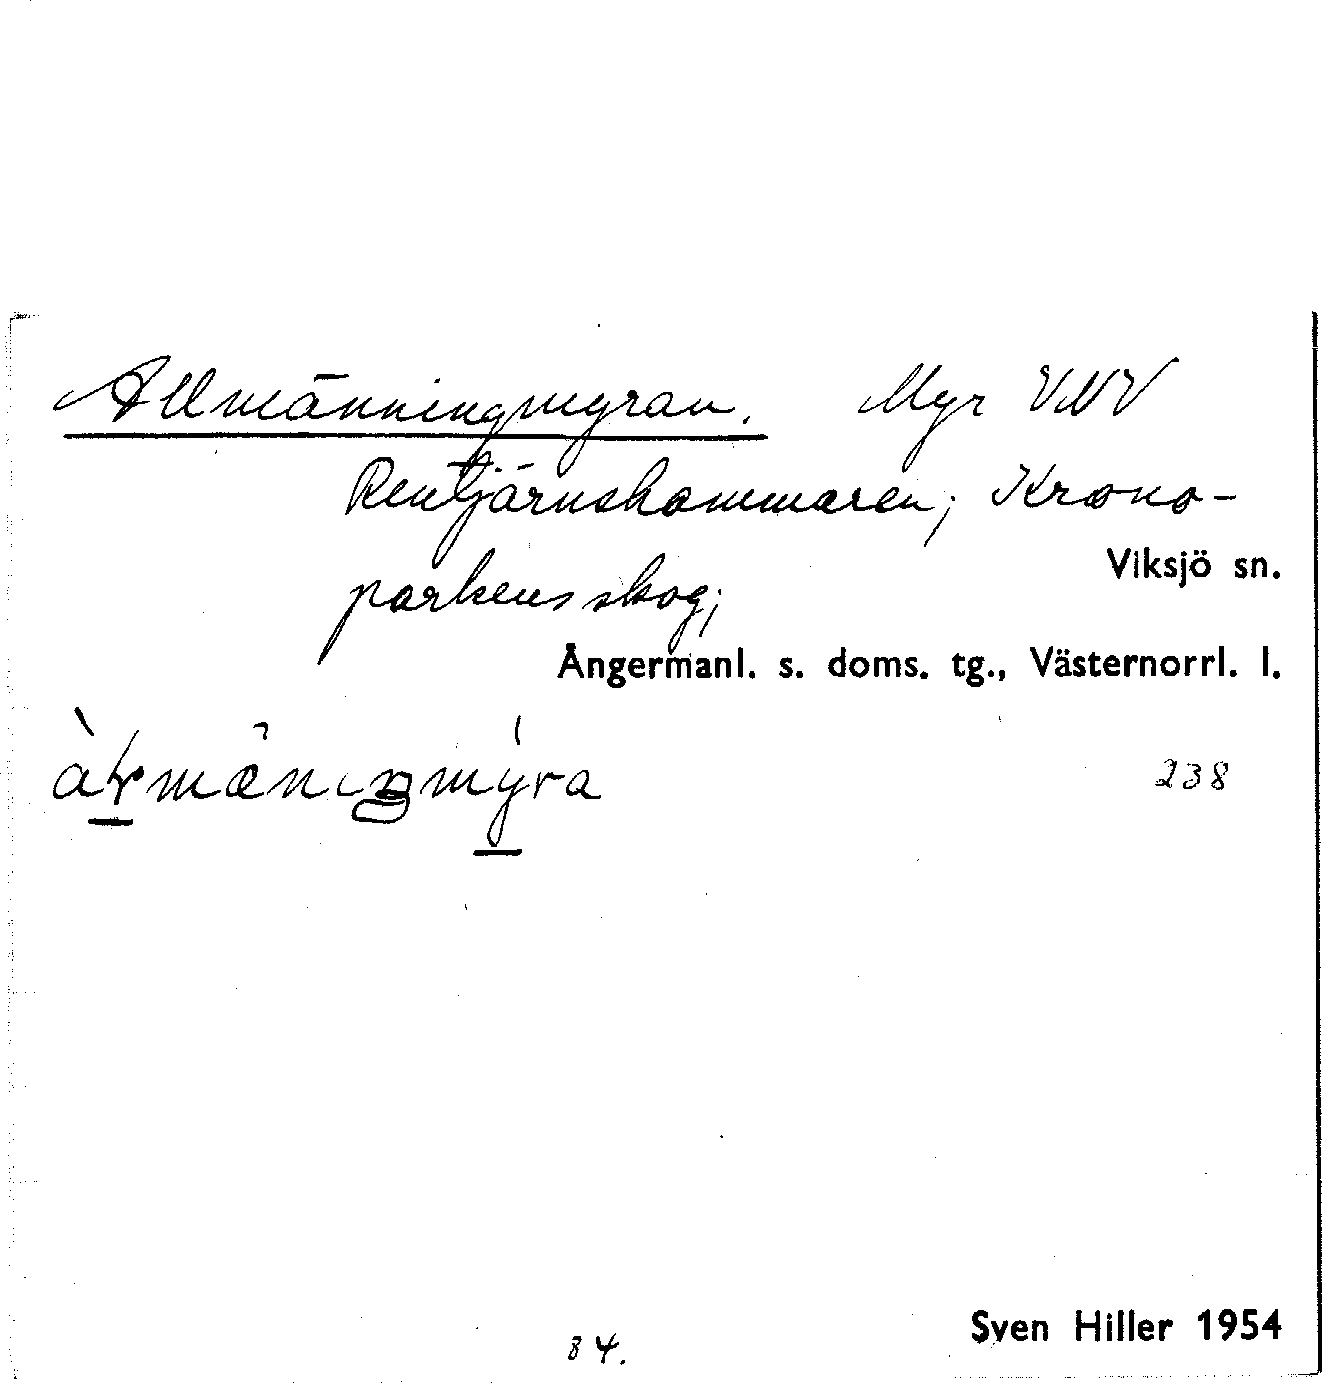 Allmänningmyran. Myr VNV
Rentjärnshammaren; Krono-
parkens skog;
Viksjö sn.
Ångermanl. s. doms. tg., Västernorrl. l.
238
84.
Sven Hiller 1954